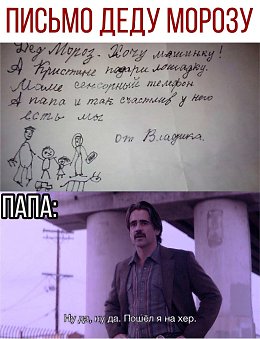 ПИСЬМО ДЕДУ МОРОЗУ
Дед Мороз. Хочу машинку!
А Кристине подари лошадку.
Маме сенсорный телефон
А папа и так счастлив у него
есть мы
от Владика.
ПАПА:
Ну да, ну да. Пошёл я на хер.